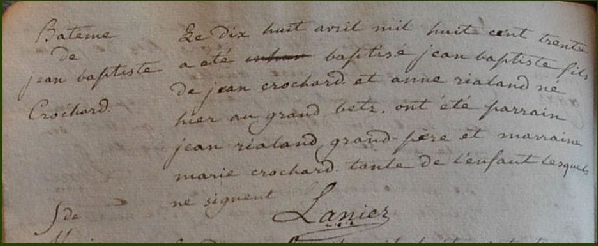 Bateme
de
jean baptiste
Crochard.
Le dix huit avril mil huite cent trente
a été inhum baptise jean baptiste fils
de jean crochard. et anne rialand ne
hier au grand betz. ont été parrain
jean rialand grand-père et marraine
marie crochard. tante de l'enfant lesquels
ne signent
Lanier
S de